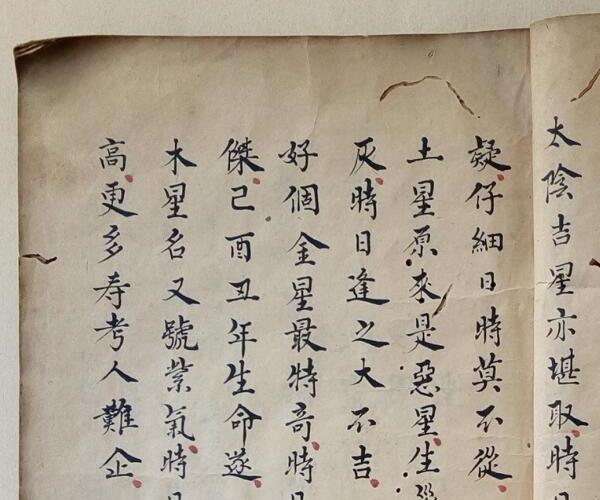 太陰吉星亦堪取時日
疑仔細日時莫不從
土星原來是惡星生
灰時日逢之大不吉
好個金星最特奇時日
傑己酉丑年生命遂
木星名又號紫氣時日
高更多寿考人難企